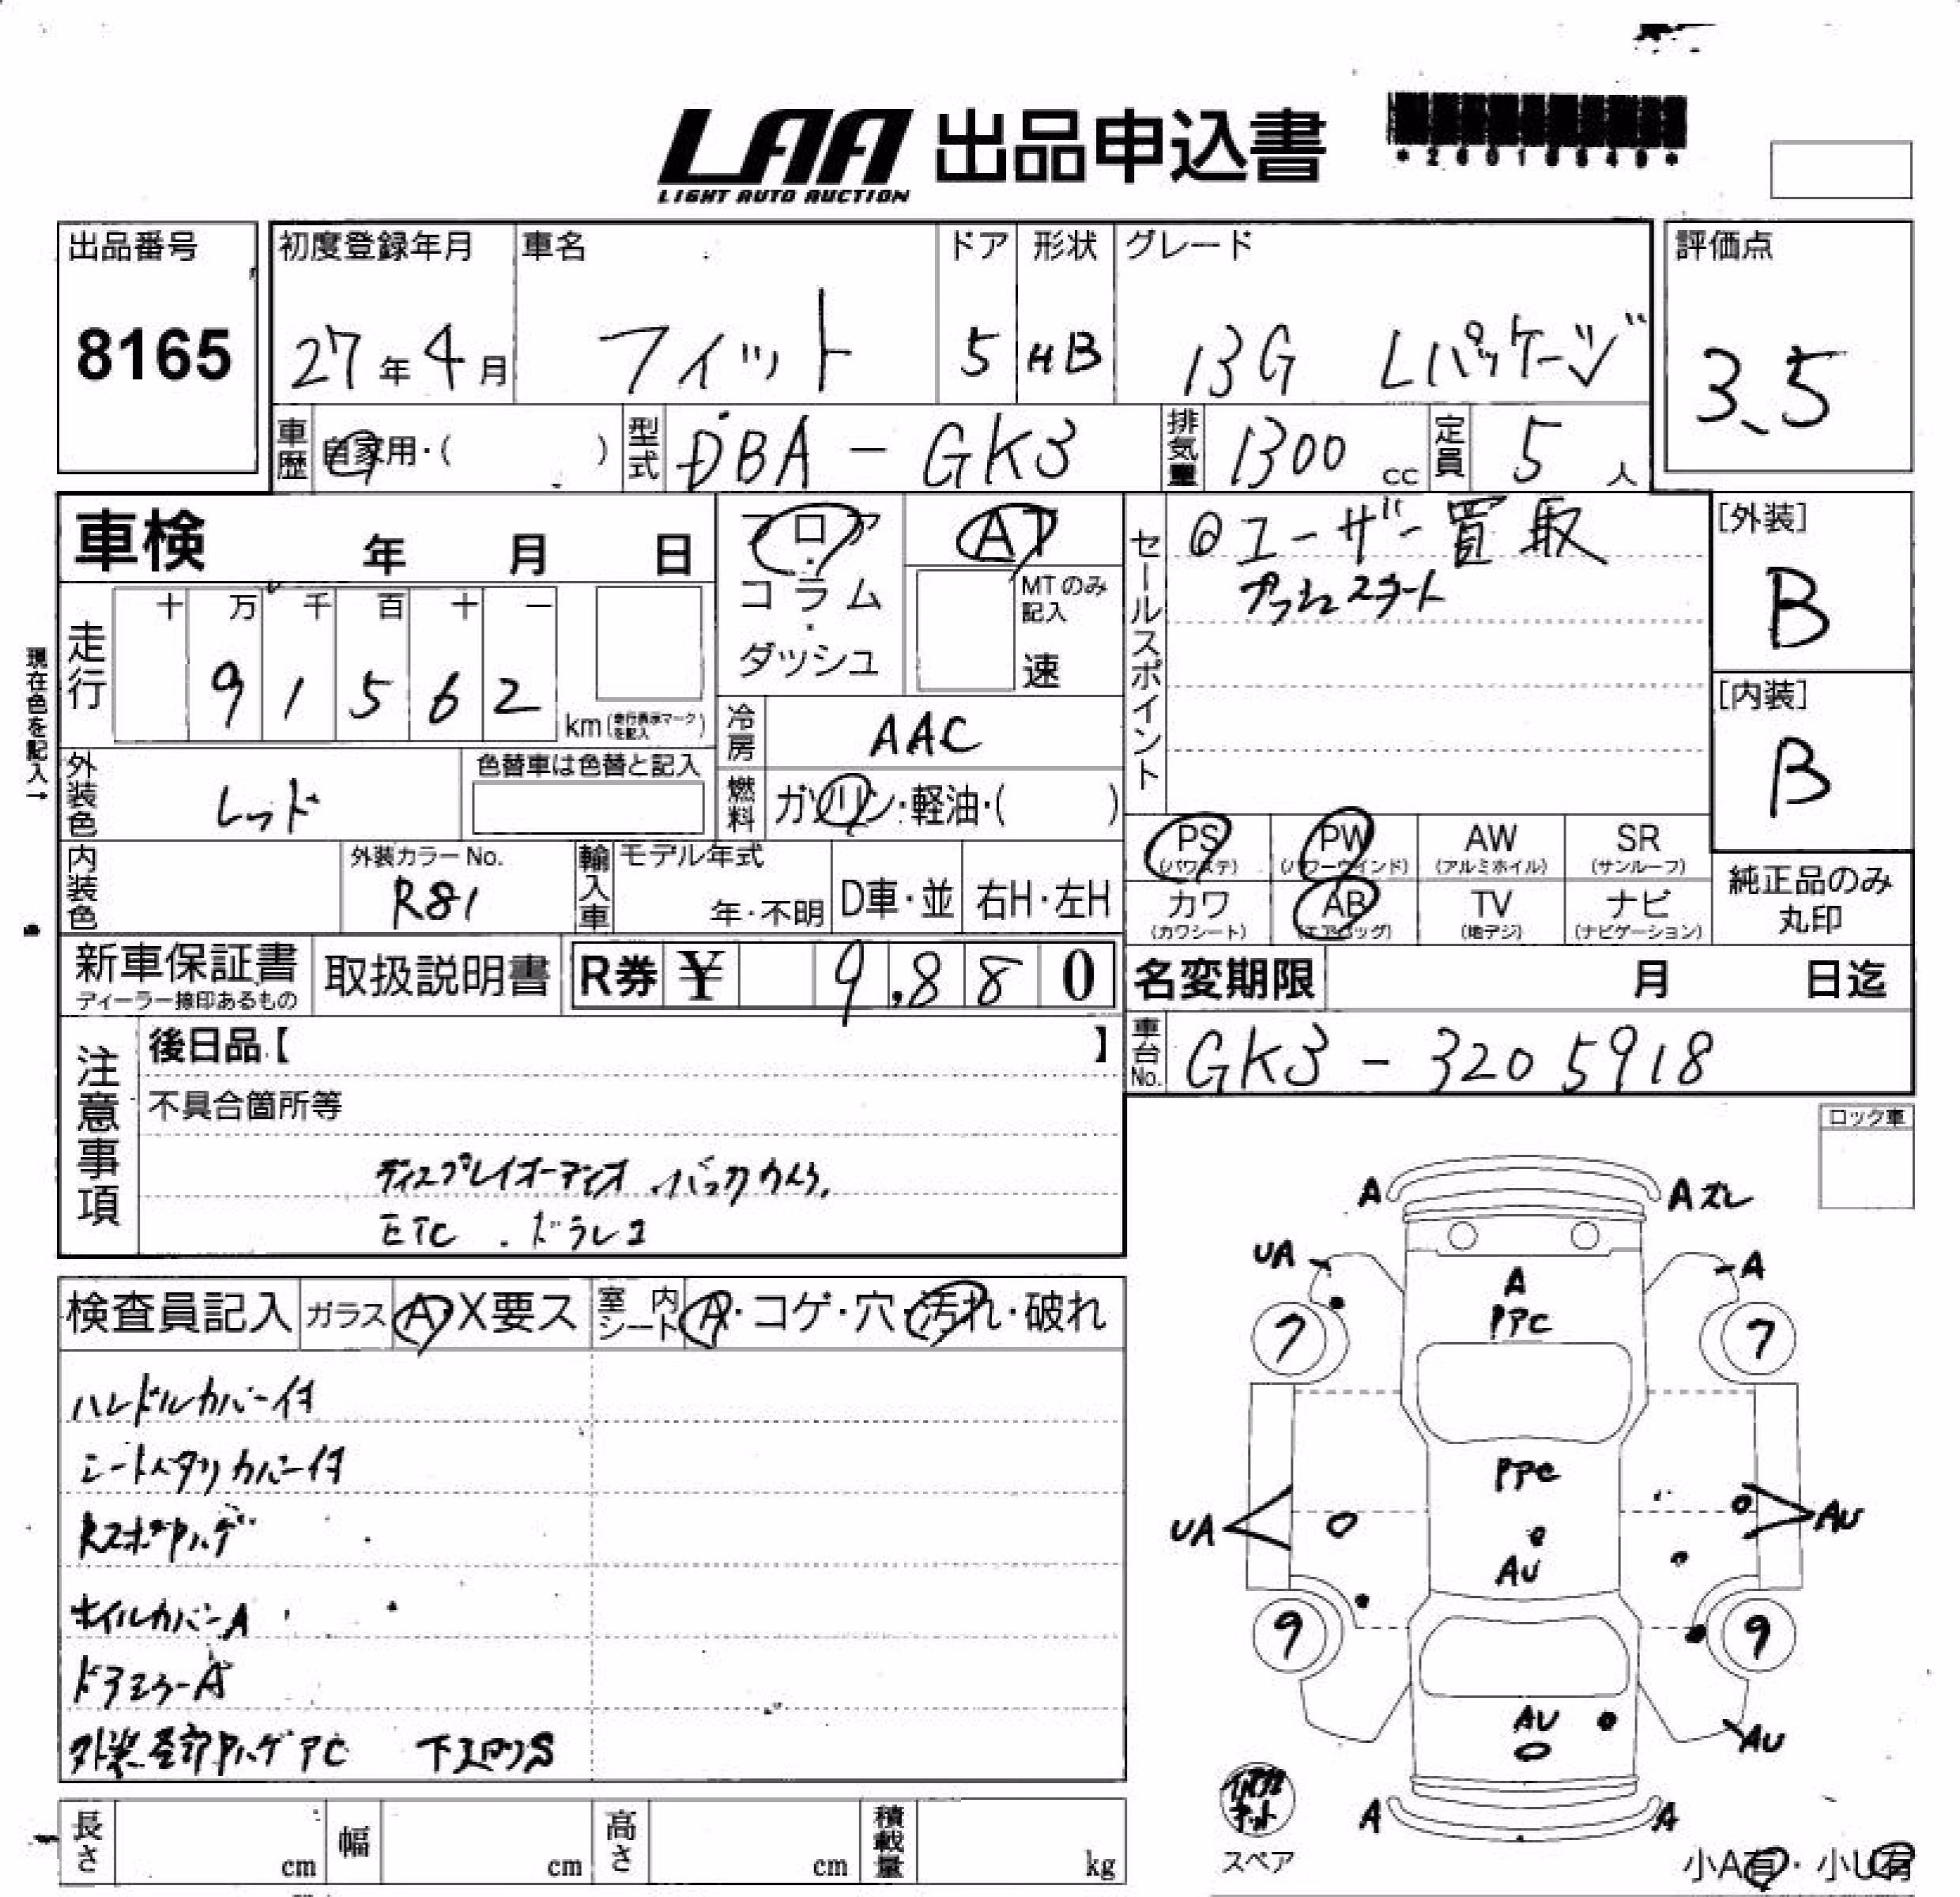 LAA 出品申込書
LIGHT AUTO AUCTION
出品番号
8165
初度登録年月
27年4月
車名
フィット
ドア
5
形状
HB
グレード
13G Lパッケージ
評価点
3.5
車歴 自家用・( )
型式 DBA-GK3
排気量 1300 cc
定員 5 人
車検 年 月 日
フロア
・
コラム
・
ダッシュ
AT
MTのみ記入
速
セールスポイント
◎ユーザー買取
プッシュスタート
[外装]
B
[内装]
B
現在色を記入→
走行
十 万 千 百 十 一
9 1 5 6 2
km(走行表示マークを記入)
冷房 AAC
外装色 レッド
色替車は色替と記入
燃料 ガソリン・軽油・( )
内装色
外装カラーNo.
R81
輸入車
モデル年式
年・不明
D車・並
右H・左H
PS
(パワステ)
PW
(パワーウインド)
AW
(アルミホイル)
SR
(サンルーフ)
カワ
(カワシート)
AB
(エアバッグ)
TV
(地デジ)
ナビ
(ナビゲーション)
純正品のみ
丸印
新車保証書
ディーラー捺印あるもの
取扱説明書
R券 ¥ 9,880
名変期限 月 日迄
車台No. GK3-3205918
注意事項
後日品【 】
不具合箇所等
ディスプレイオーディオ.バックカメラ.
ETC . ドラレコ
ロック車
検査員記入
ガラス A X要ス
室内シート A・コゲ・穴・汚れ・破れ
ハンドルカバー付
ホイルカバーA
ドアミラーA
下廻りS
A
Aズレ
UA
A
A
PPC
7
7
PPC
UA
AU
AU
9
9
AU
AU
A
A
スペア
小A有・小U有
長さ cm
幅 cm
高さ cm
積載量 kg